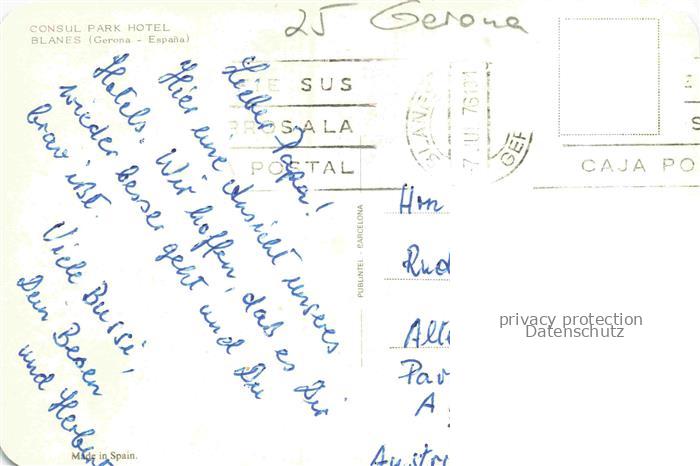 CONSUL PARK HOTEL
BLANES (Gerona - España)
25 Gerona
Lieber Papa!
Hier eine Ansicht unseres
Hotels. Wir hoffen, daß es Dir
wieder besser geht und Du
brav ißt.
Viele Bussi,
Dein
und
SUS
SALA
POSTAL
7 JUL 76
GER
CAJA PO
PUBLINTEL - BARCELONA
Hrn
Rud
Alt
Pav
A
Austr
privacy protection
Datenschutz
Made in Spain.